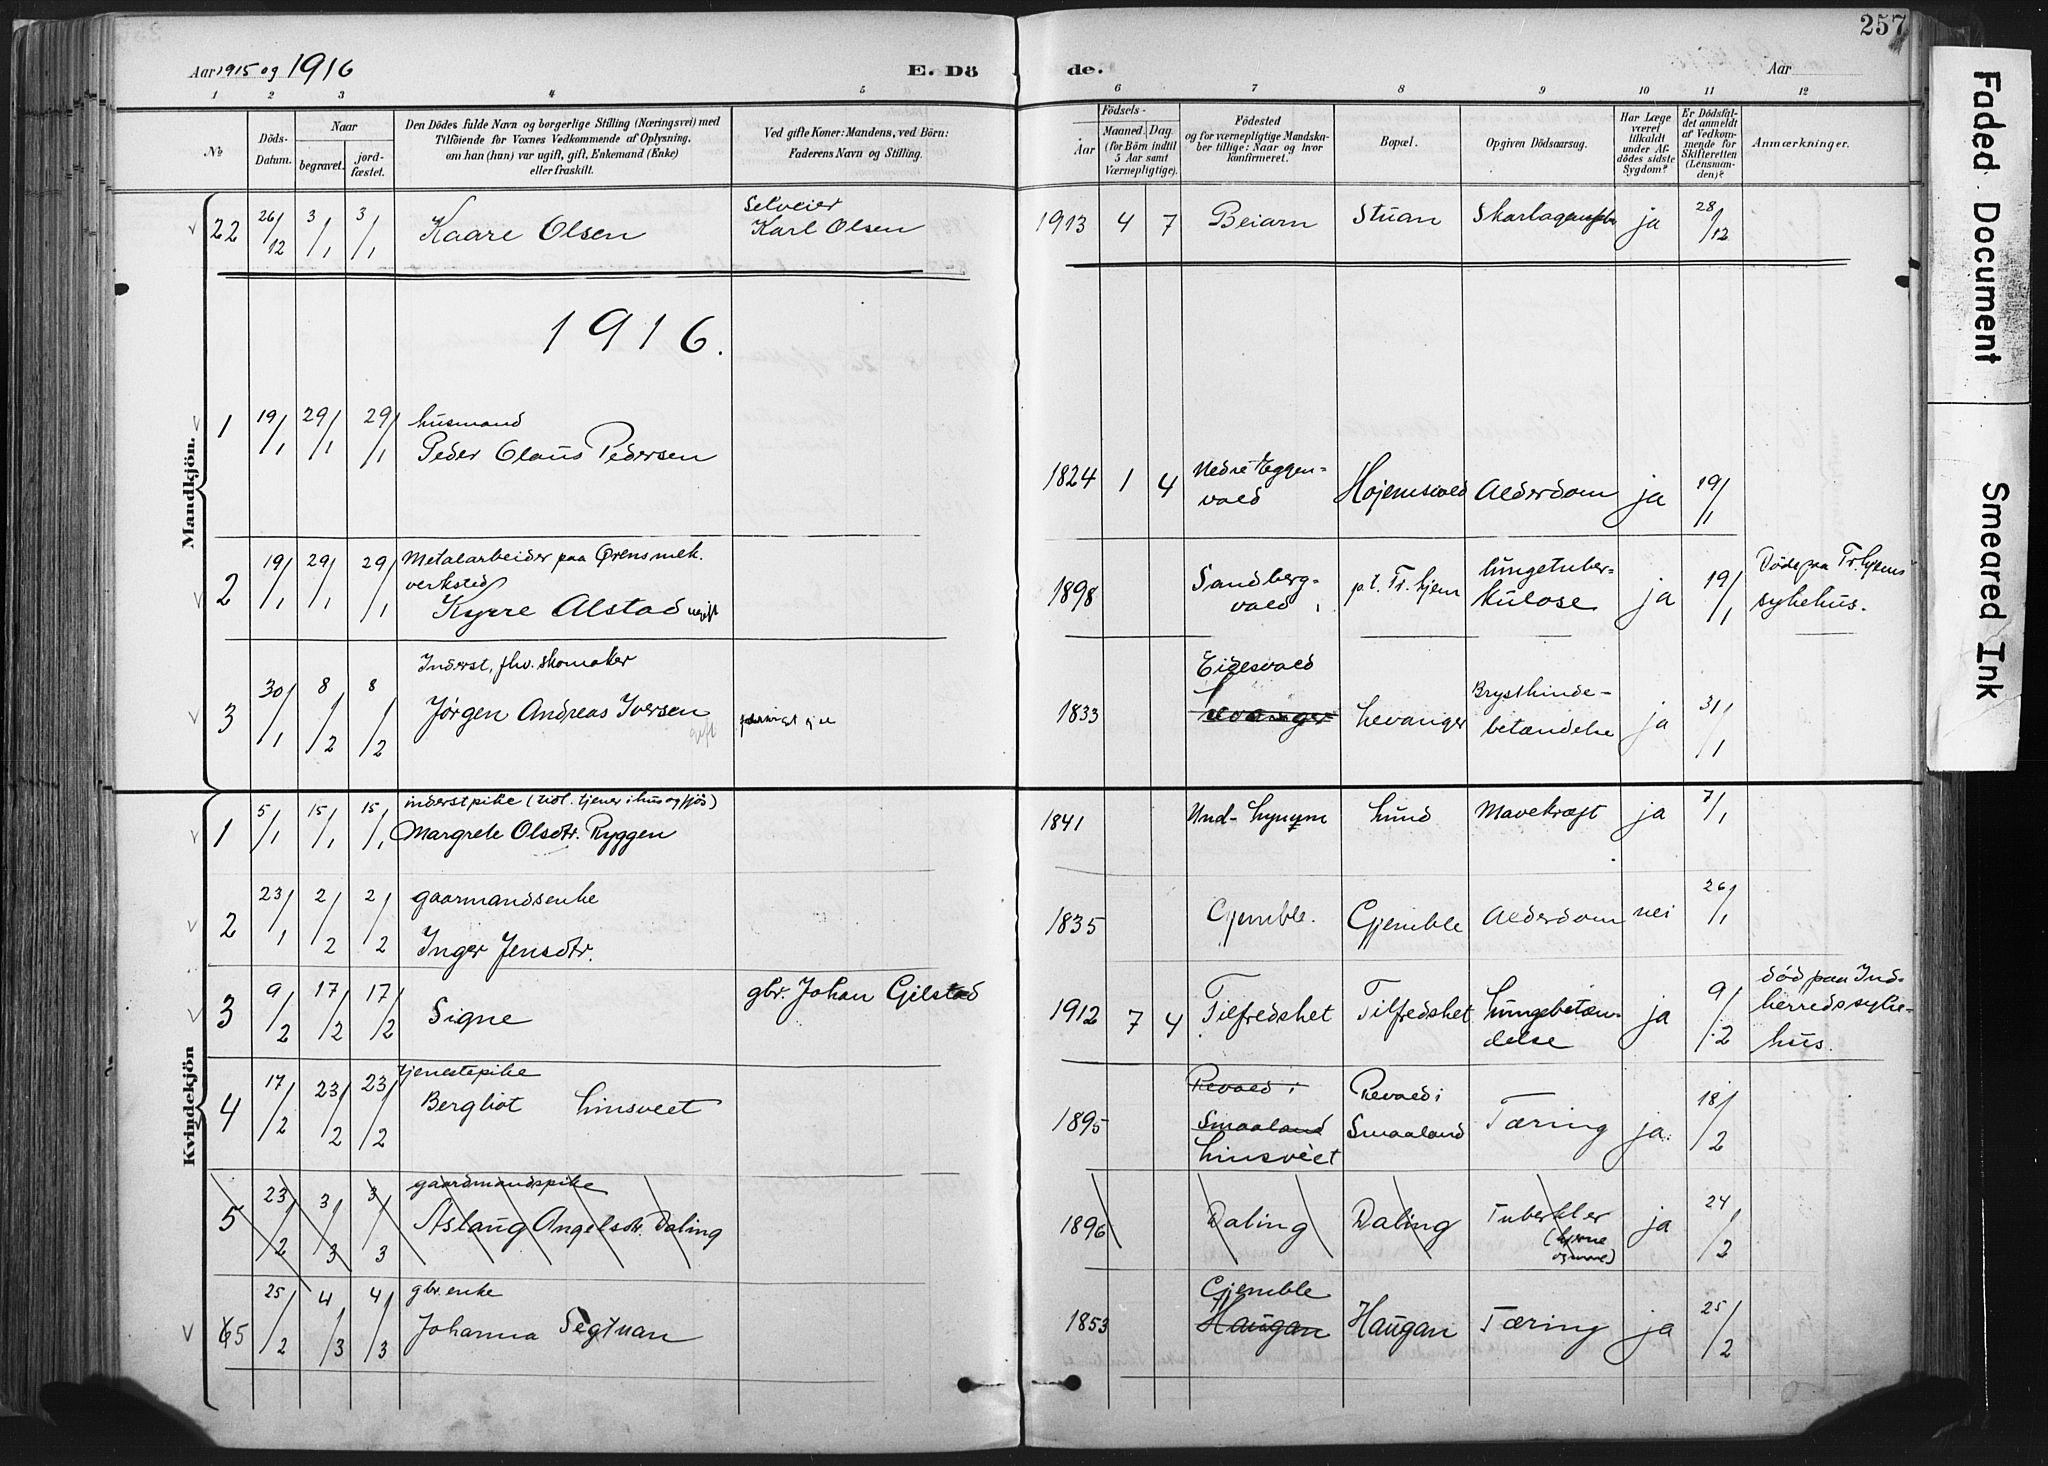 257
Aar 1915 og 1916
E. Dö de.
Aar
1 2 3 4 5 6 7 8 9 10 11 12
No
Döds-Datum.
Naar
begravet.
jordfæstet.
Den Dödes fulde Navn og borgerlige Stilling (Næringsvei) med
Tilföiende for Voxnes Vedkommende af Oplysning,
om han (hun) var ugift, gift, Enkemand (Enke)
eller fraskilt.
Ved gifte Koner: Mandens, ved Börn:
Faderens Navn og Stilling.
Födsels-
Aar
Maaned. (for Börn indtil 5 Aar samt Værnepligtige).
Dag.
Födested
og for værnepligtige Mandskaber tillige: Naar og hvor konfirmeret.
Bopæl.
Opgiven Dödsaarsag.
Har Læge været tilkaldt under Afdödes sidste Sygdom?
Er Dödsfaldet anmeldt af Vedkommende for Skifteretten (Lensmanden)?
Anmærkninger.
Mandkjön.
22 26/12 3/1 3/1 Kaare Olsen Selveier Karl Olsen 1913 4 7 Beiarn Stuan ja 28/12
1916.
1 19/1 29/1 29/1 husmand
Peder Olaus Pedersen 1824 1 4 Nedre Eggenvald Hojemsvald Alderdom ja 19/1
2 19/1 29/1 29/1 Metalarbeider paa Ørens mek.
verksted
Kyrre Alstad ugift 1898 Sandbergvald p.t. Tr.hjem lungetuberkulose ja 19/1 Døde paa Tr.hjems sykehus.
3 30/1 8/2 8/2 Inderst, fhv. skomaker
Jørgen Andreas Iversen gift 1833 Eidesvald Levanger Levanger Brysthindebetændelse ja 31/1
Kvindekjön
1 5/1 15/1 15/1 inderstpike (tidl. tjener i hus og fjøs)
Margrete Olsdtr. Ryggen 1841 Und- Lynum Lund Mavekræft ja 7/1
2 23/1 2/2 2/2 gaarmandsenke
Inger Jensdtr. 1835 Gjemble. Gjemble Alderdom nei 26/1
3 9/2 17/2 17/2 Signe gbr. Johan Gilstad 1912 7 4 Tilfredshet Tilfredshet Lungebetændelse ja 9/2 død paa Indherreds sykehus.
4 17/2 23/2 23/2 tjenestepike
Bergliot Linsveet 1895 Revald i Smaaland Linsveet Revald i Smaaland Tæring ja. 18/2
5 23/2 3/3 3/3 gaardmandspike
Aslaug Angelsdtr. Daling 1896 Daling Daling Tuberkler ja 24/2
65 25/2 4/3 4/3 gbr. enke
Johanna Segtnan 1853 Gjemble Haugan Haugan Tæring ja 25/2
Faded Document
Smeared Ink